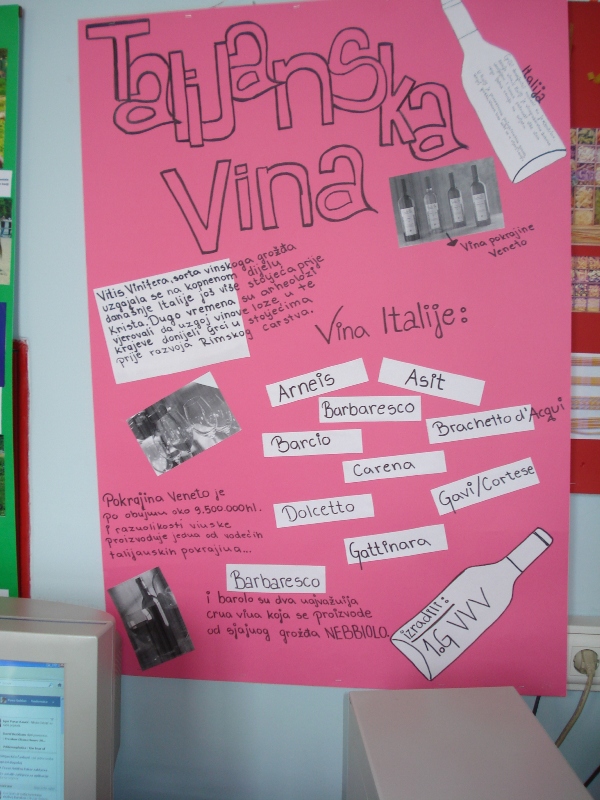 Talijanska
Vina
Italija
Vina pokrajine
Veneto
Vitis Vinifera, sorta vinskoga grožđa
uzgajala se na kopnenom dijelu
današnje Italije još više stoljeća prije
Krista. Dugo vremena su arheolozi
vjerovali da uzgoj vinove loze u te
krajeve donijeli Grci u stoljećima
prije razvoja Rimskog carstva.
Vina Italije:
Arneis
Asit
Barbaresco
Brachetto d'Acqui
Barcio
Carena
Gavi/Cortese
Dolcetto
Gattinara
Pokrajina Veneto je
po obujmu oko 9.500.000hl.
i raznolikosti vinske
proizvodnje jedna od vodećih
talijanskih pokrajina...
Barbaresco
i barolo su dva najvažnija
crna vina koja se proizvode
od sjajnog grožđa NEBBIOLO.
izradili:
1.G VVV